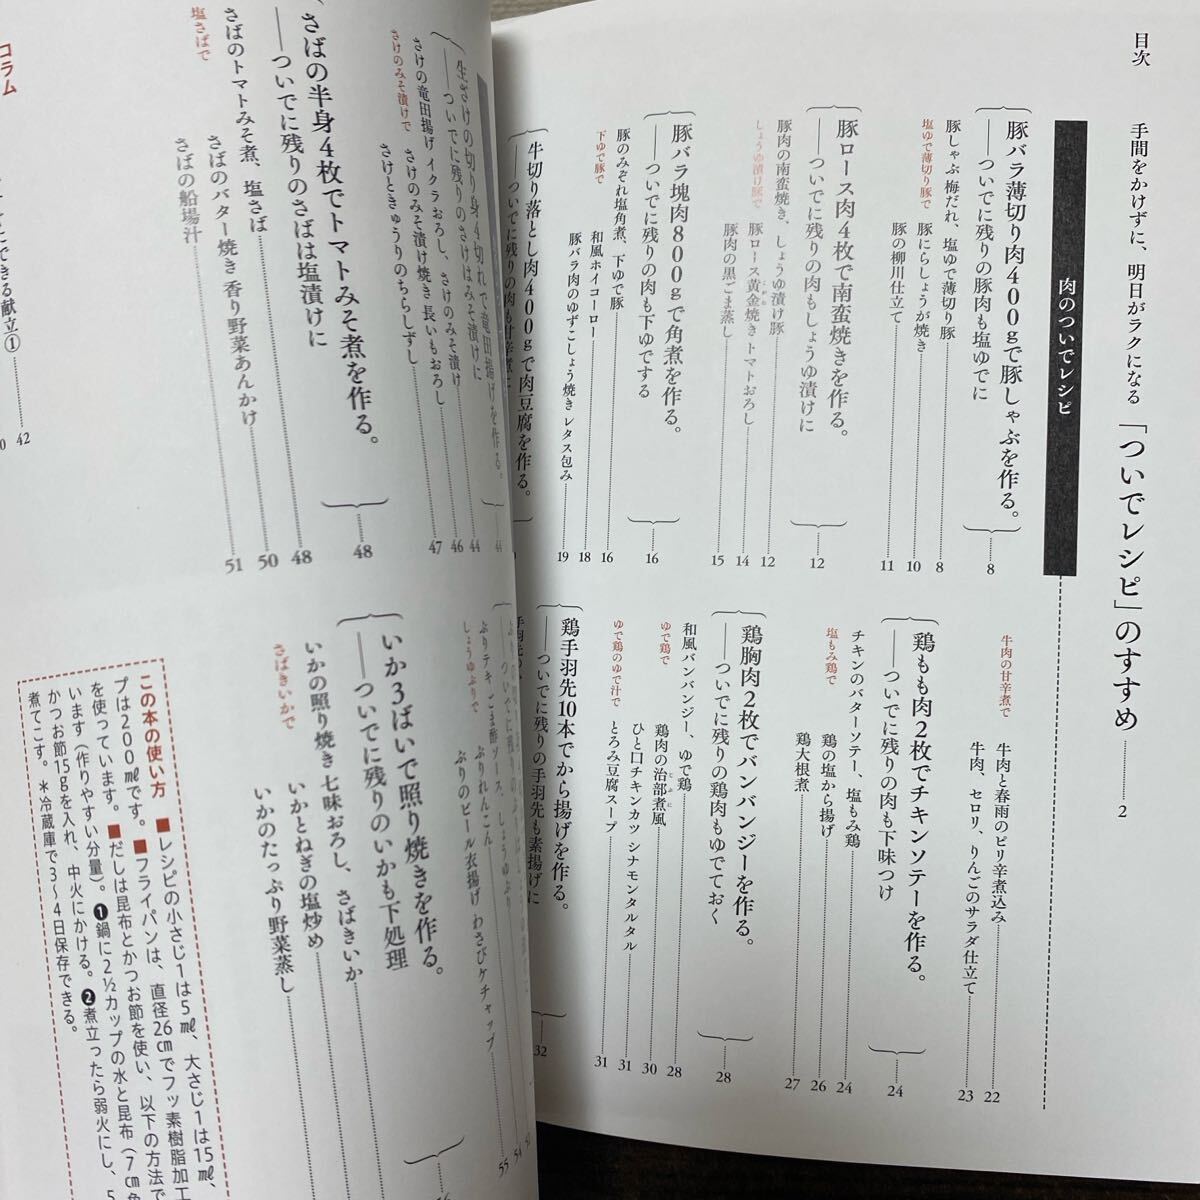 目次
手間をかけずに、明日がラクになる 「ついでレシピ」のすすめ 2
肉のついでレシピ
豚バラ薄切り肉400gで豚しゃぶを作る。
——ついでに残りの豚肉も塩ゆでに 8
豚しゃぶ 梅だれ、塩ゆで薄切り豚 8
塩ゆで薄切り豚で
豚にらしょうが焼き 10
豚の柳川仕立て 11
豚ロース肉4枚で南蛮焼きを作る。
——ついでに残りの肉もしょうゆ漬けに 12
豚肉の南蛮焼き、しょうゆ漬け豚 12
しょうゆ漬け豚で
豚ロース黄金焼き トマトおろし 14
豚肉の黒ごま蒸し 15
豚バラ塊肉800gで角煮を作る。
——ついでに残りの肉も下ゆでする 16
豚のみぞれ塩角煮、下ゆで豚 16
下ゆで豚で
和風ホイコーロー 18
豚バラ肉のゆずこしょう焼き レタス包み 19
牛切り落とし肉400gで肉豆腐を作る。
——ついでに残りの肉も甘辛煮に
牛肉の甘辛煮で
牛肉と春雨のピリ辛煮込み 22
牛肉、セロリ、りんごのサラダ仕立て 23
鶏もも肉2枚でチキンソテーを作る。
——ついでに残りの肉も下味つけ 24
チキンのバターソテー、塩もみ鶏 24
塩もみ鶏で
鶏の塩から揚げ 26
鶏大根煮 27
鶏胸肉2枚でバンバンジーを作る。
——ついでに残りの鶏肉もゆでておく 28
和風バンバンジー、ゆで鶏 28
ゆで鶏で
鶏肉の治部煮風 30
ひと口チキンカツ シナモンタルタル 31
ゆで鶏のゆで汁で
とろみ豆腐スープ 31
鶏手羽先10本でから揚げを作る。
——ついでに残りの手羽先も素揚げに 32
生さけの切り身4切れで竜田揚げを作る。
——ついでに残りのさけはみそ漬けに 44
さけの竜田揚げ イクラおろし、さけのみそ漬け 44
さけのみそ漬けで
さけのみそ漬け焼き 長いもおろし 46
さけときゅうりのちらしずし 47
さばの半身4枚でトマトみそ煮を作る。
——ついでに残りのさばは塩漬けに 48
さばのトマトみそ煮、塩さば 48
塩さばで
さばのバター焼き 香り野菜あんかけ 50
さばの船場汁 51
コラム
できる献立① 42
ぶりテキ ごま酢ソース、しょうゆぶり
しょうゆぶりで
ぶりれんこん 54
ぶりのビール衣揚げ わさびケチャップ 55
いか3ばいで照り焼きを作る。
——ついでに残りのいかも下処理
いかの照り焼き 七味おろし、さばきいか
さばきいかで
いかとねぎの塩炒め
いかのたっぷり野菜蒸し
この本の使い方
■レシピの小さじ1は5㎖、大さじ1は15㎖、
プは200㎖です。■フライパンは、直径26㎝でフッ素樹脂加工
を使っています。■だしは昆布とかつお節を使い、以下の方法で
います（作りやすい分量）。❶鍋に2½カップの水と昆布（7㎝角
かつお節15gを入れ、中火にかける。❷煮立ったら弱火にし、5
煮てこす。＊冷蔵庫で3〜4日保存できる。